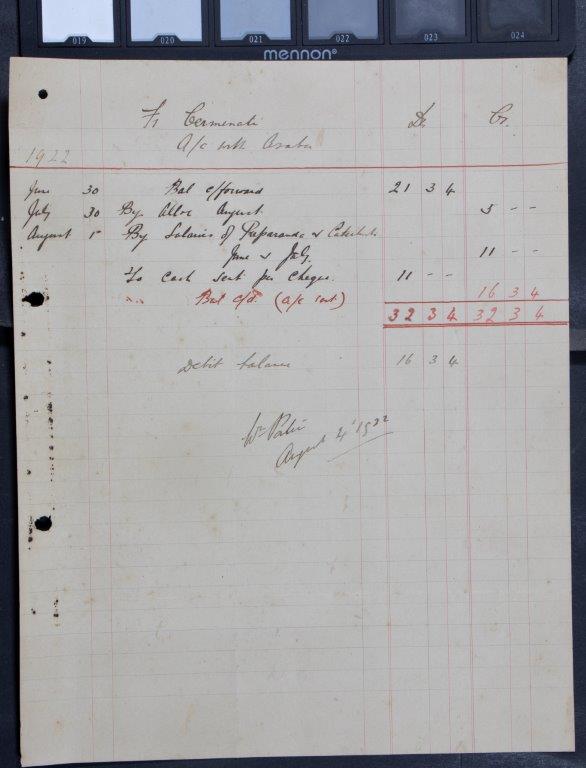 019 020 021 022 023 024
mennon®
Fr Cermenati Dr. Cr.
A/c with Asaba
1922
June 30 Bal c/forward 21 3 4
July 30 By Alloc August. 5 - -
August 1st By Salaries of Preparanda & Catechists
June & July. 11 - -
To Cash sent per Cheque. 11 - -
Bal c/d. (a/c sent) 16 3 4
32 3 4 32 3 4
Debit balance 16 3 4
Wm
August 4' 1922